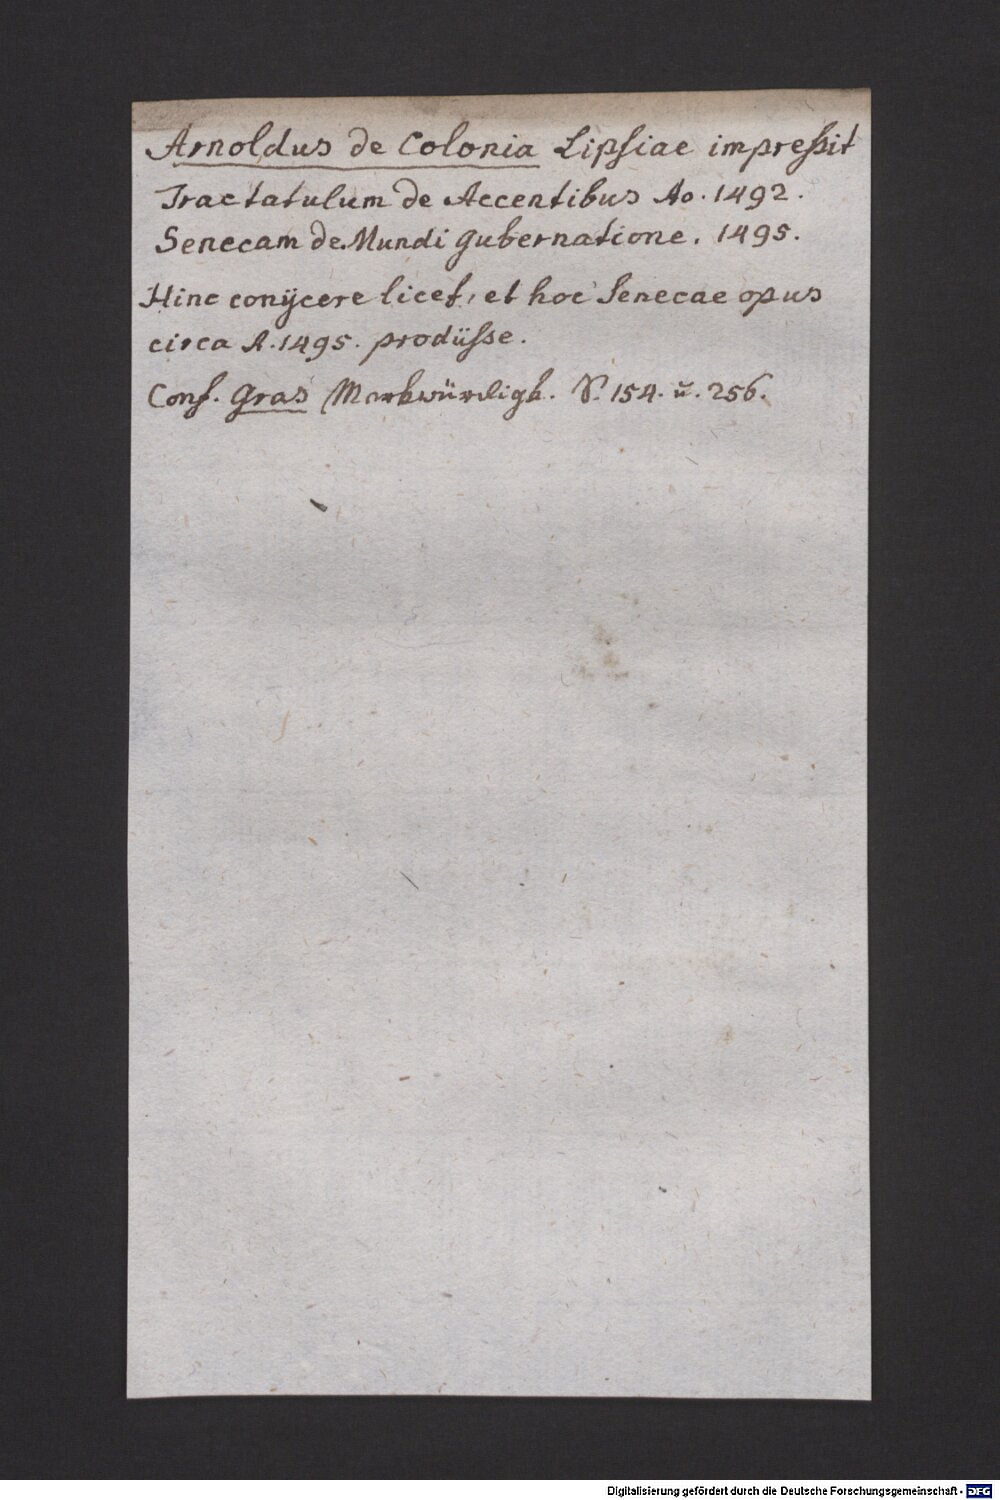 Arnoldus de Colonia Lipsiae impreſsit
Tractatulum de Accentibus Ao. 1492.
Senecam de Mundi gubernatione. 1495.
Hinc conÿcere licet, et hoc Senecae opus
circa A. 1495. prodÿſse.
Conf. Gras Merkwürdigk. S. 154. ŭ. 256.
Digitalisierung gefördert durch die Deutsche Forschungsgemeinschaft - DFG